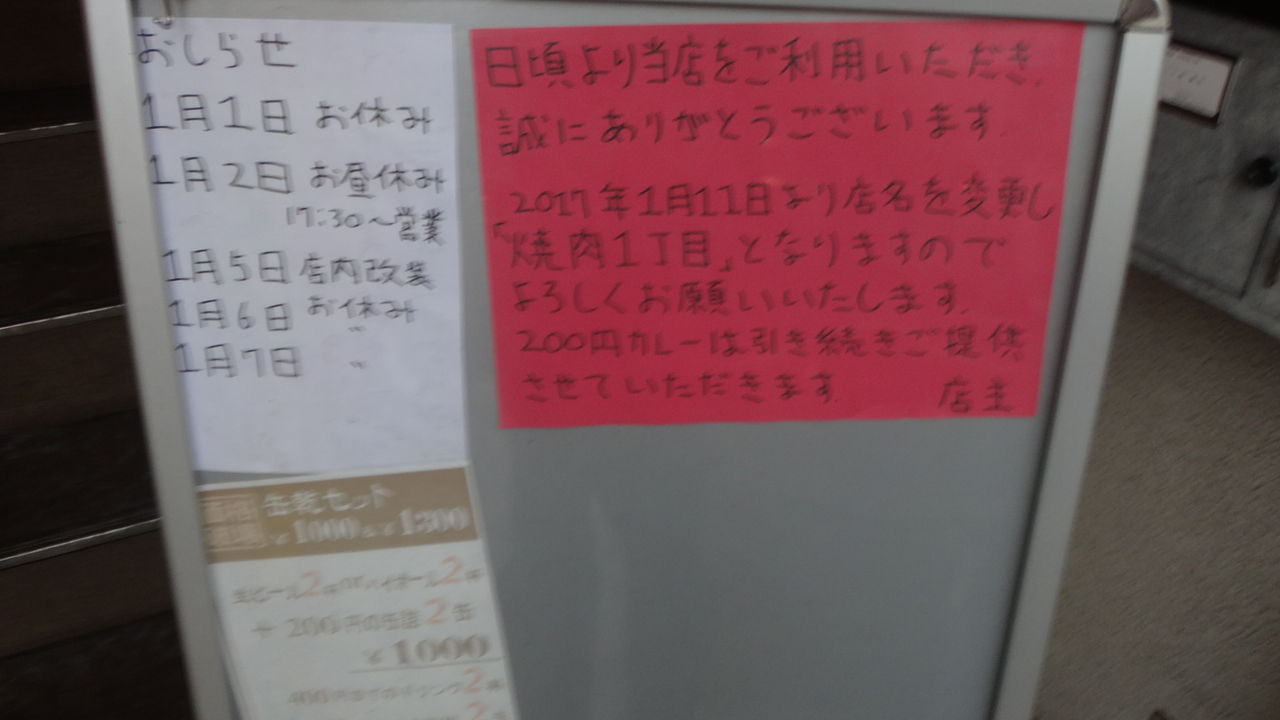 おしらせ
1月1日 お休み
1月2日 お昼休み
17:30〜営業
1月5日 店内改装
1月6日 お休み
1月7日 〃
日頃より当店をご利用いただき、
誠にありがとうございます
2017年1月11日より店名を変更し
「焼肉1丁目」となりますので
よろしくお願いいたします。
200円カレーは引き続きご提供
させていただきます。 店主
缶乾セット
¥1000 ¥1300
生ビール2杯orハイボール2杯
+200円の缶詰2缶
¥1000
400円までのドリンク2杯